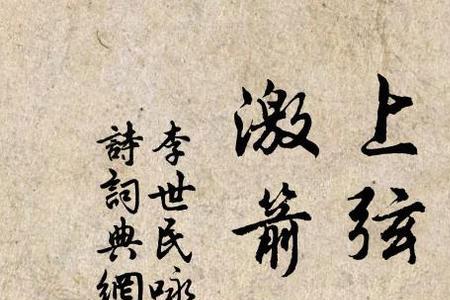 上弦
激箭
李世民咏
詩詞典網